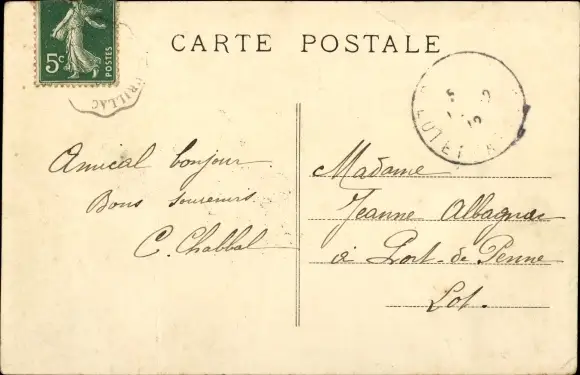 CARTE POSTALE
5c
POSTES
Amical bonjour
Bons souvenirs
C. Chabbal
Madame
Jeanne Albagnac
à Port-de Penne
Lot.